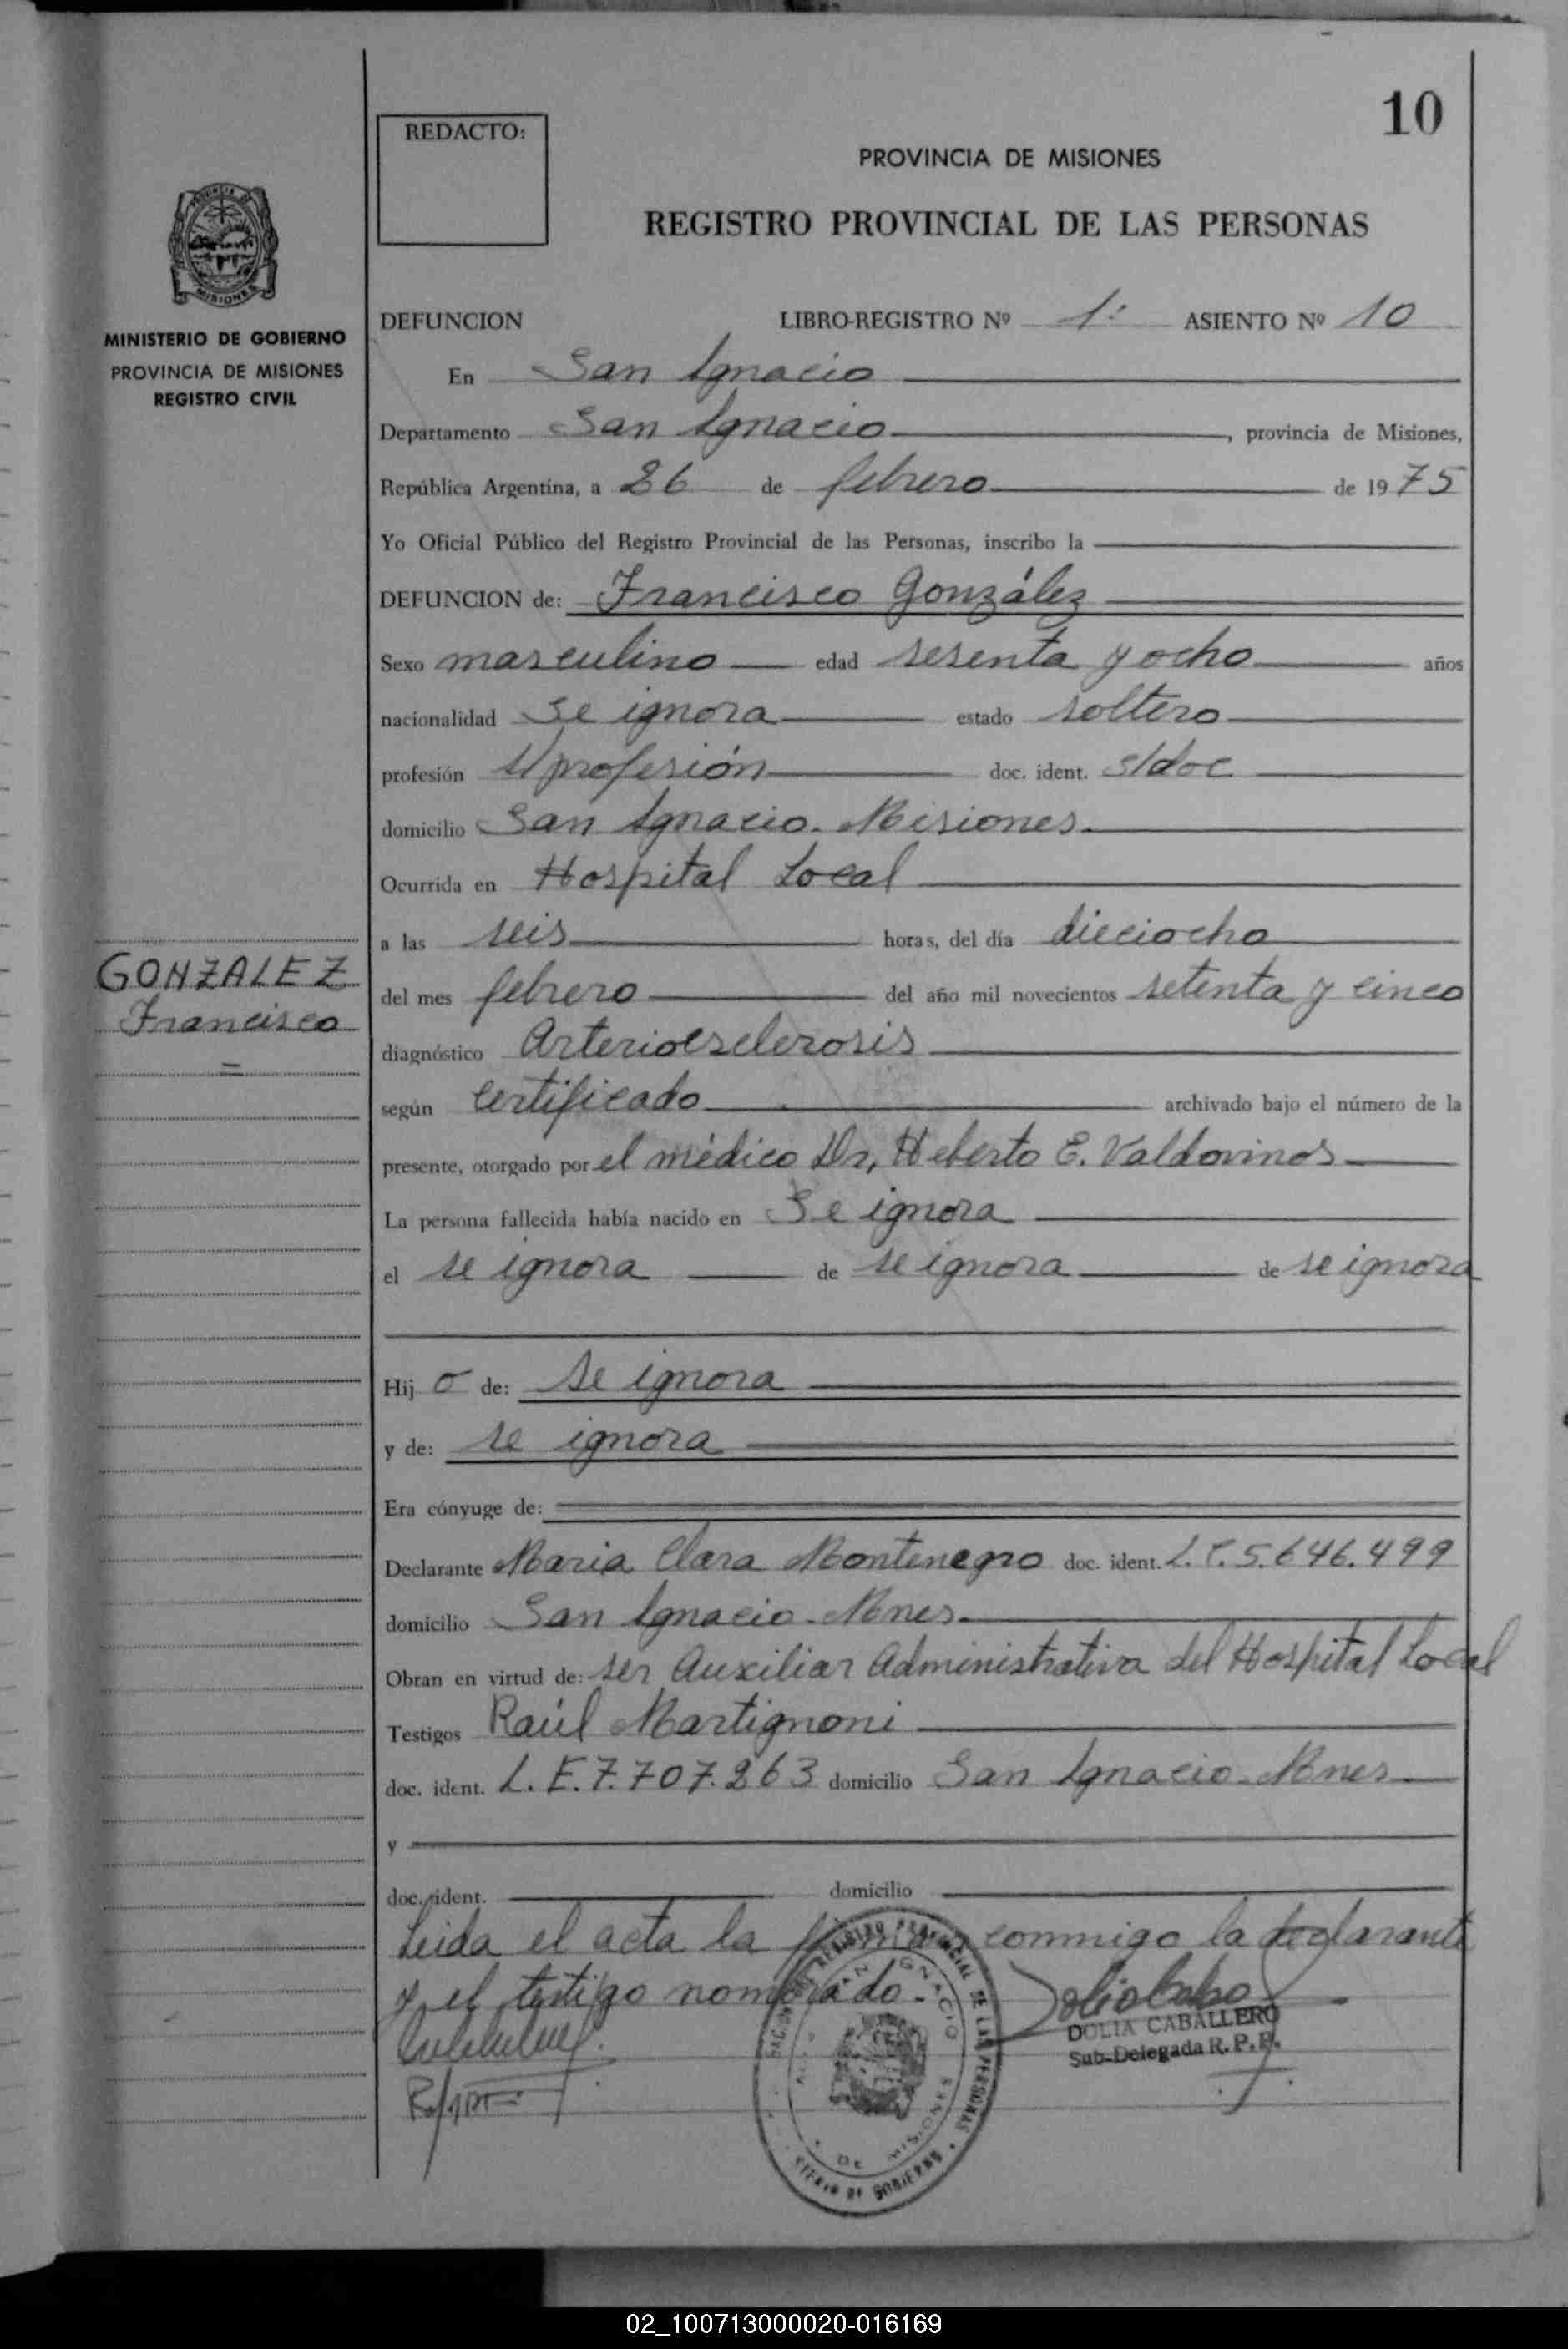 10
REDACTO:
PROVINCIA DE MISIONES
REGISTRO PROVINCIAL DE LAS PERSONAS
MISIONES
MINISTERIO DE GOBIERNO
PROVINCIA DE MISIONES
REGISTRO CIVIL
DEFUNCION LIBRO-REGISTRO Nº 1º ASIENTO Nº 10
En San Ignacio
Departamento San Ignacio, provincia de Misiones,
República Argentina, a 26 de febrero de 1975
Yo Oficial Público del Registro Provincial de las Personas, inscribo la
DEFUNCION de: Francisco González
Sexo masculino edad sesenta y ocho años
nacionalidad se ignora estado soltero
profesión s/profesión doc. ident. s/doc
domicilio San Ignacio. Misiones.
Ocurrida en Hospital Local
a las seis horas, del día dieciocho
GONZALEZ
Francisco
del mes febrero del año mil novecientos setenta y cinco
diagnóstico Arterioesclerosis
según certificado archivado bajo el número de la
presente, otorgado por el médico Dr, Heberto E. Valdovinos
La persona fallecida había nacido en Se ignora
el se ignora de se ignora de se ignora
Hij o de: se ignora
y de: se ignora
Era cónyuge de:
Declarante Maria Clara Montenegro doc. ident. L.C. 5.646.499
domicilio San Ignacio - Mnes.
Obran en virtud de: ser Auxiliar Administrativa del Hospital Local
Testigos Raúl Martignoni
doc. ident. L.E. 7.707.263 domicilio San Ignacio - Mnes
y
doc. ident. domicilio
Leida el acta la conmigo la declarante
y el testigo nombrado.
DOLIA CABALLERO
Sub-Delegada R.P.P.
02_100713000020-016169